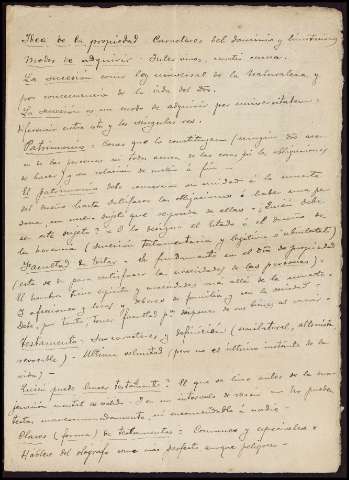 Idea de la propiedad Caracteres del dominio y limitaciones
Modos de adquirir - Inter vivos, mortis causa.
La sucesión como ley universal de la naturaleza y
por consecuencia de la vida del Dro.
La sucesión es un modo de adquirir per universitatem.
Diferencia entre esta y las singulas res.
Patrimonio = Cosas que lo constituyen (ningún dro
de las personas ni todos acerca de las cosas ni las obligaciones
de hacer) y en relación de medio á fin -
El patrimonio debe conservar su unidad á la muerte
del dueño hasta satisfacer las obligaciones ó haber una per
sona, un nuevo sujeto que responda de ellas - ¿Quién debe
ser este sujeto? = O lo designa el Estado ó el dueño de
la herencia (sucesión testamentaria y legítima ó intestada)
Facultad de testar = Su fundamento en el dro de propiedad
(esta es de para satisfacer las necesidades de las personas).
El hombre tiene espíritu y necesidades mas allá de la muerte -
y afecciones y lazos y deberes de familia y con la sociedad -
Debe, por tanto, tener facultad pa disponer de sus bienes al morir -
Testamento = Su carácter y definición (unilateral,
revocable) - Última voluntad (pero no el último instante de la
vida) -
Quién puede hacer testamento? El que se hizo antes de la ena-
genación mental es valido. En un intervalo de razón - No pueden
testar mancomunadamente, ni encomendarlo á nadie -
Clases (forma) de testamentos = Comunes y especiales =
Háblese del ológrafo como mas perfecto aunque peligroso -